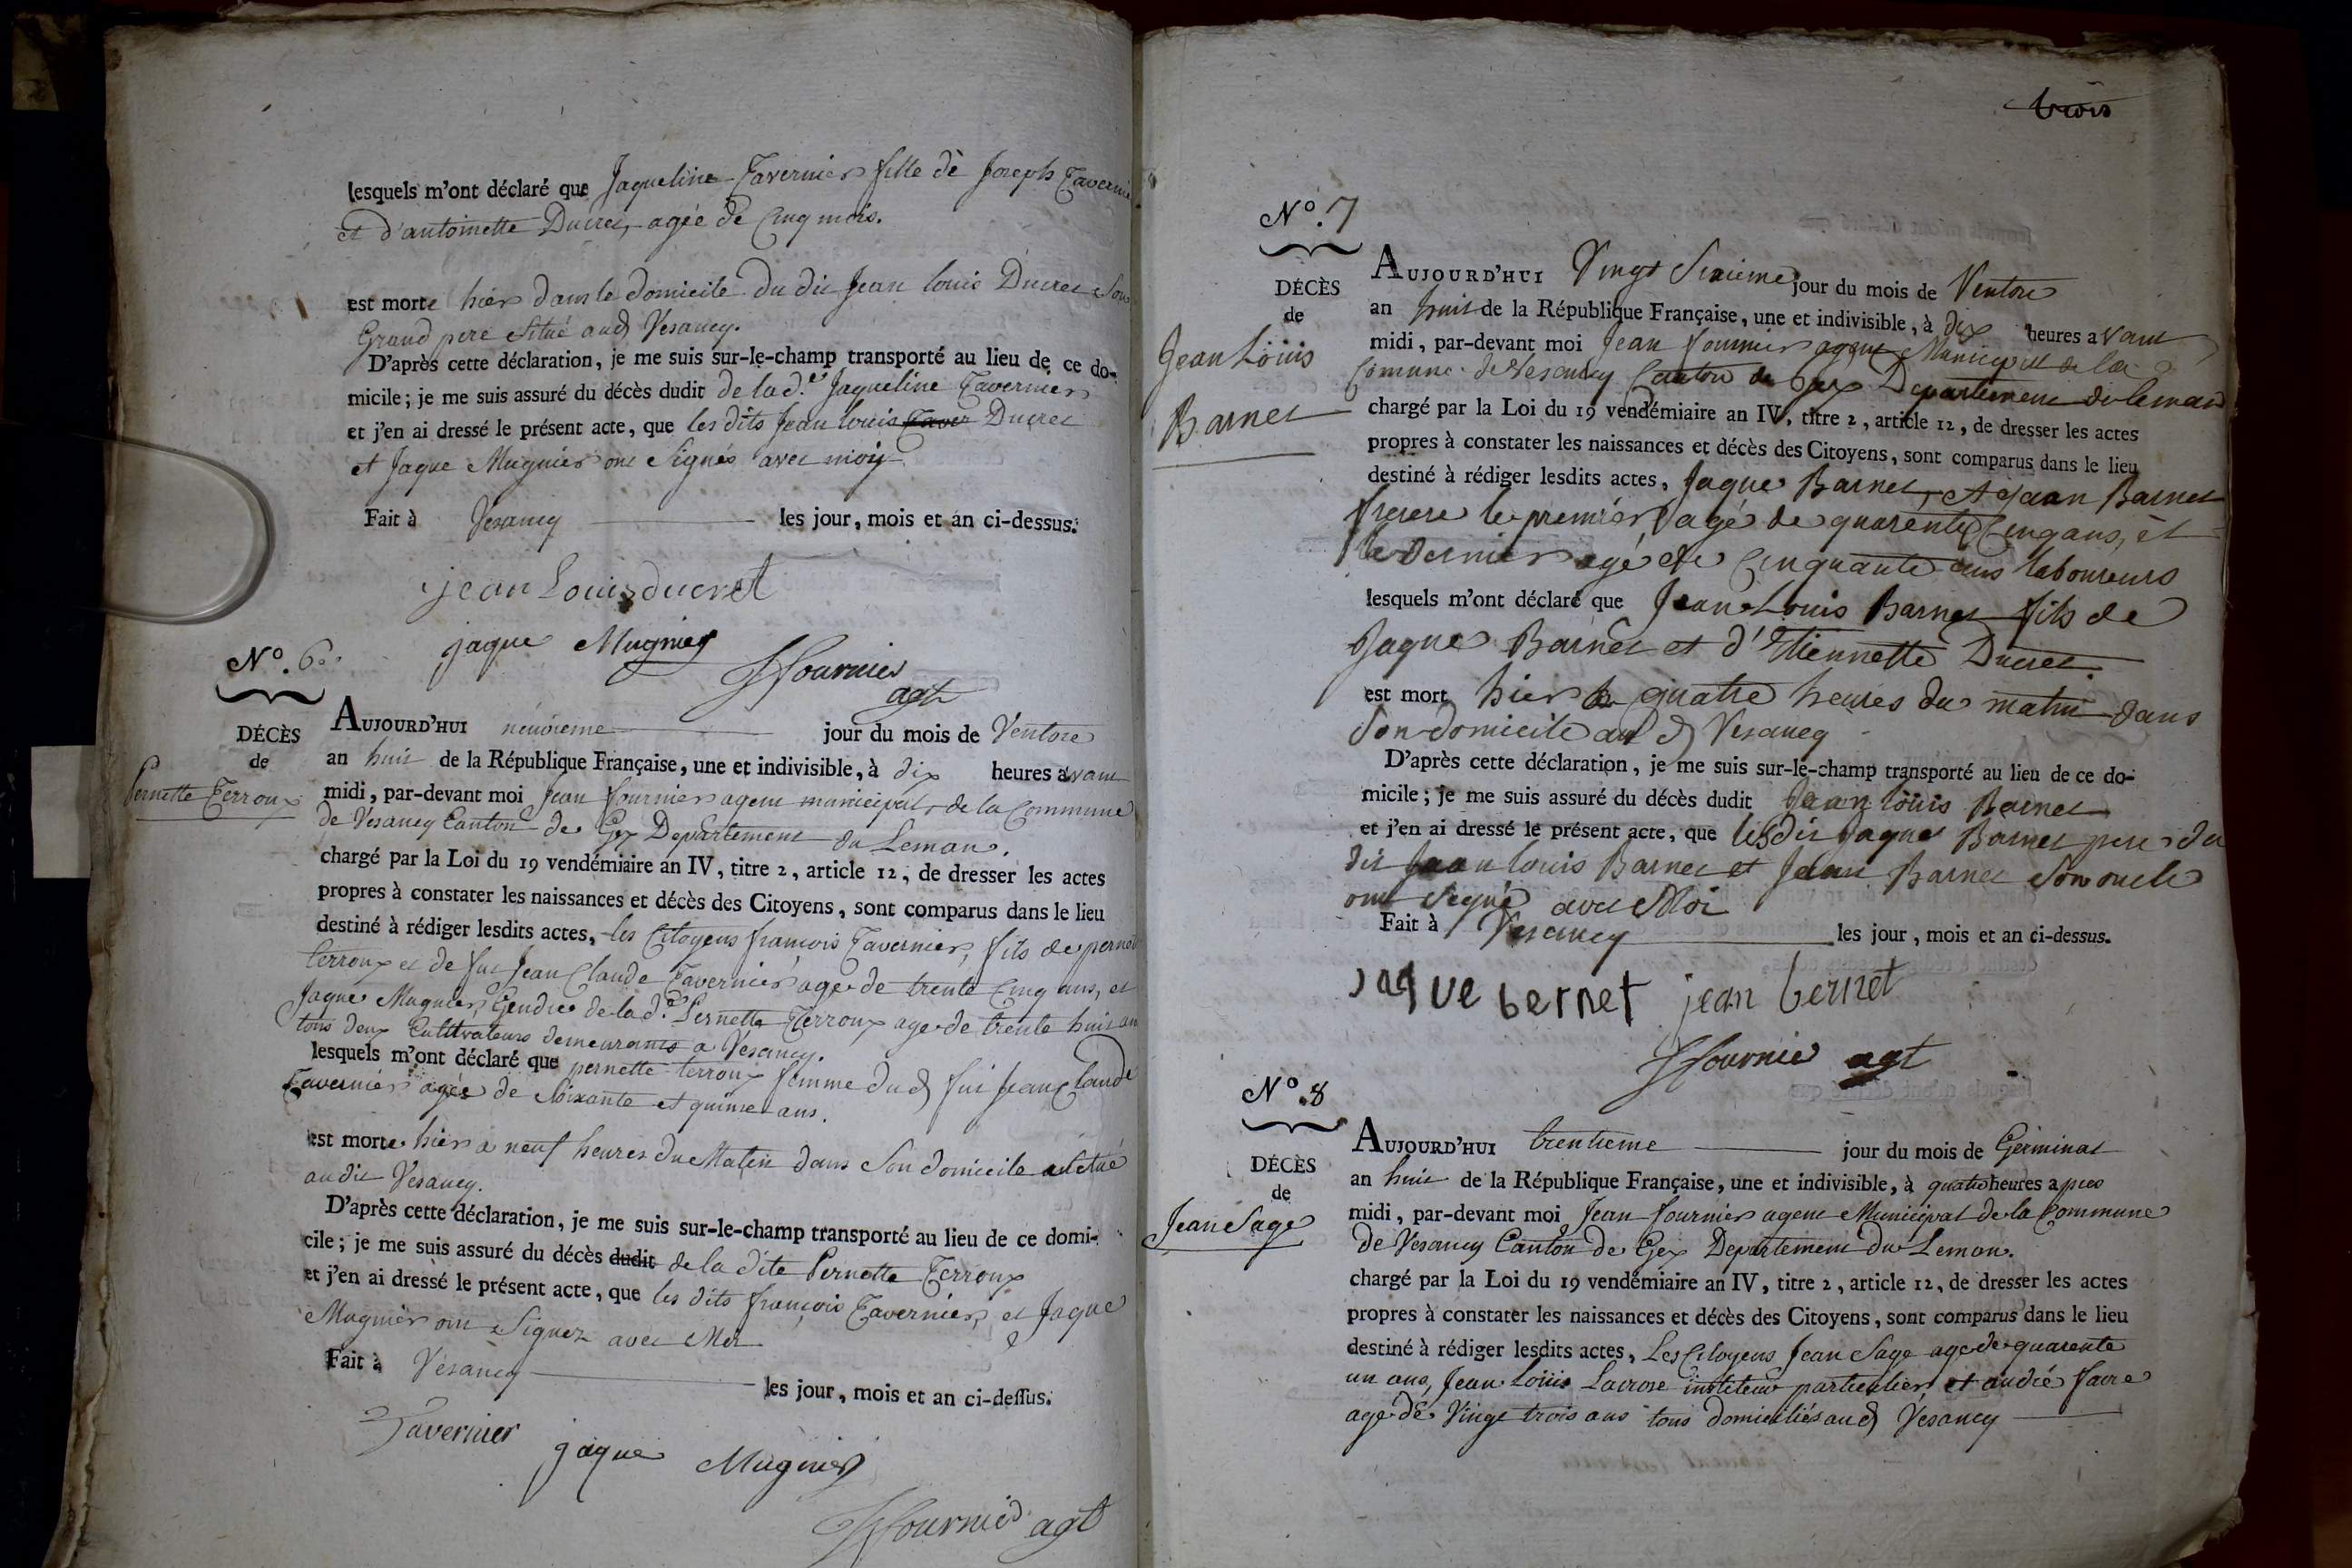 lesquels m'ont déclaré que Jaqueline Tavernier fille de Joseph Tavernier
et d'antoinette Ducret, agée de Cinq mois.
est morte hier dans le domicile du dit Jean louis Ducret Son
Grand pere Situé aud Vesancy.
D'après cette déclaration, je me suis sur-le-champ transporté au lieu de ce do-
micile; je me suis assuré du décès dudit de la d.te Jaqueline Tavernier
et j'en ai dressé le présent acte, que les dits Jean louis Taver Ducret
et Jaque Mugnier ont Signés avec moy
Fait à Vesancy les jour, mois et an ci-dessus.
jean Louis ducret
jaque Mugnier
JFournier
agt
N°. 6
DÉCÈS
de
Pernette Terroux
AUJOURD'HUI neuvieme jour du mois de Ventose
an huit de la République Française, une et indivisible, à dix heures avant
midi, par-devant moi Jean fournier agent municipal de la Commune
de Vesancy Canton de Gex Departement du Leman.
chargé par la Loi du 19 vendémiaire an IV, titre 2, article 12, de dresser les actes
propres à constater les naissances et décès des Citoyens, sont comparus dans le lieu
destiné à rédiger lesdits actes, les Citoyens françois Tavernier, fils de pernette
terroux et de fut Jean Claude Tavernier age de trente Cinq ans, et
Jaque Mugnier, Gendre de la d.te Pernette Terroux age de trente huit ans
tous deux Cultivateurs demeurants a Vesancy.
lesquels m'ont déclaré que pernette terroux femme dud fut Jean Claude
Tavernier agée de Soixante et quinze ans.
est morte hier a neuf heures du Matin dans Son domicile situé
au dit Vesancy.
D'après cette déclaration, je me suis sur-le-champ transporté au lieu de ce domi-
cile; je me suis assuré du décès dudit de la dite Pernette Terroux
et j'en ai dressé le présent acte, que les dits françois Tavernier, et Jaque
Mugnier ont Signez avec Moi
Fait à Vesancy les jour, mois et an ci-dessus.
Tavernier
jaque Mugnier
JFournier agt
trois
N°. 7
DÉCÈS
de
Jean Loüis
Barnet
AUJOURD'HUI Vingt Sixieme jour du mois de Ventose
an huit de la République Française, une et indivisible, à dix heures avant
midi, par-devant moi Jean fournier agent Municipal de la
Comune de Vesancy Canton de Gex Departement du leman
chargé par la Loi du 19 vendémiaire an IV, titre 2, article 12, de dresser les actes
propres à constater les naissances et décès des Citoyens, sont comparus dans le lieu
destiné à rédiger lesdits actes, Jaque Barnet, et Jean Barnet
frerere le premier agé de quarente Cinq ans, et
le dernier agé de Cinquante ans laboureurs
lesquels m'ont déclaré que Jean Louis Barnet fils de
Jaque Barnet et d'Etiennette Ducret.
est mort hier a quatre heures du matin dans
Son domicile aud Vesancy
D'après cette déclaration, je me suis sur-le-champ transporté au lieu de ce do-
micile; je me suis assuré du décès dudit Jean loüis Barnet
et j'en ai dressé le présent acte, que lesdit Jaque Barnet pere du
dit Jean louis Barnet et Jean Barnet Son oncle
ont Signé avec Moi
Fait à Vesancy les jour, mois et an ci-dessus.
jaque bernet jean bernet
JFournie agt
N°. 8
DÉCÈS
de
Jean Sage
AUJOURD'HUI trentieme jour du mois de Germinal
an huit de la République Française, une et indivisible, à quatre heures apres
midi, par-devant moi Jean fournier agent Municipal de la Commune
de Vesancy Canton de Gex Departement du Leman.
chargé par la Loi du 19 vendémiaire an IV, titre 2, article 12, de dresser les actes
propres à constater les naissances et décès des Citoyens, sont comparus dans le lieu
destiné à rédiger lesdits actes, Les Citoyens Jean Sage age de quarente
un ans, Jean Loüis Lacrose instituteur particulier et andré favre
age de Vingt trois ans tous domiciliés aud Vesancy